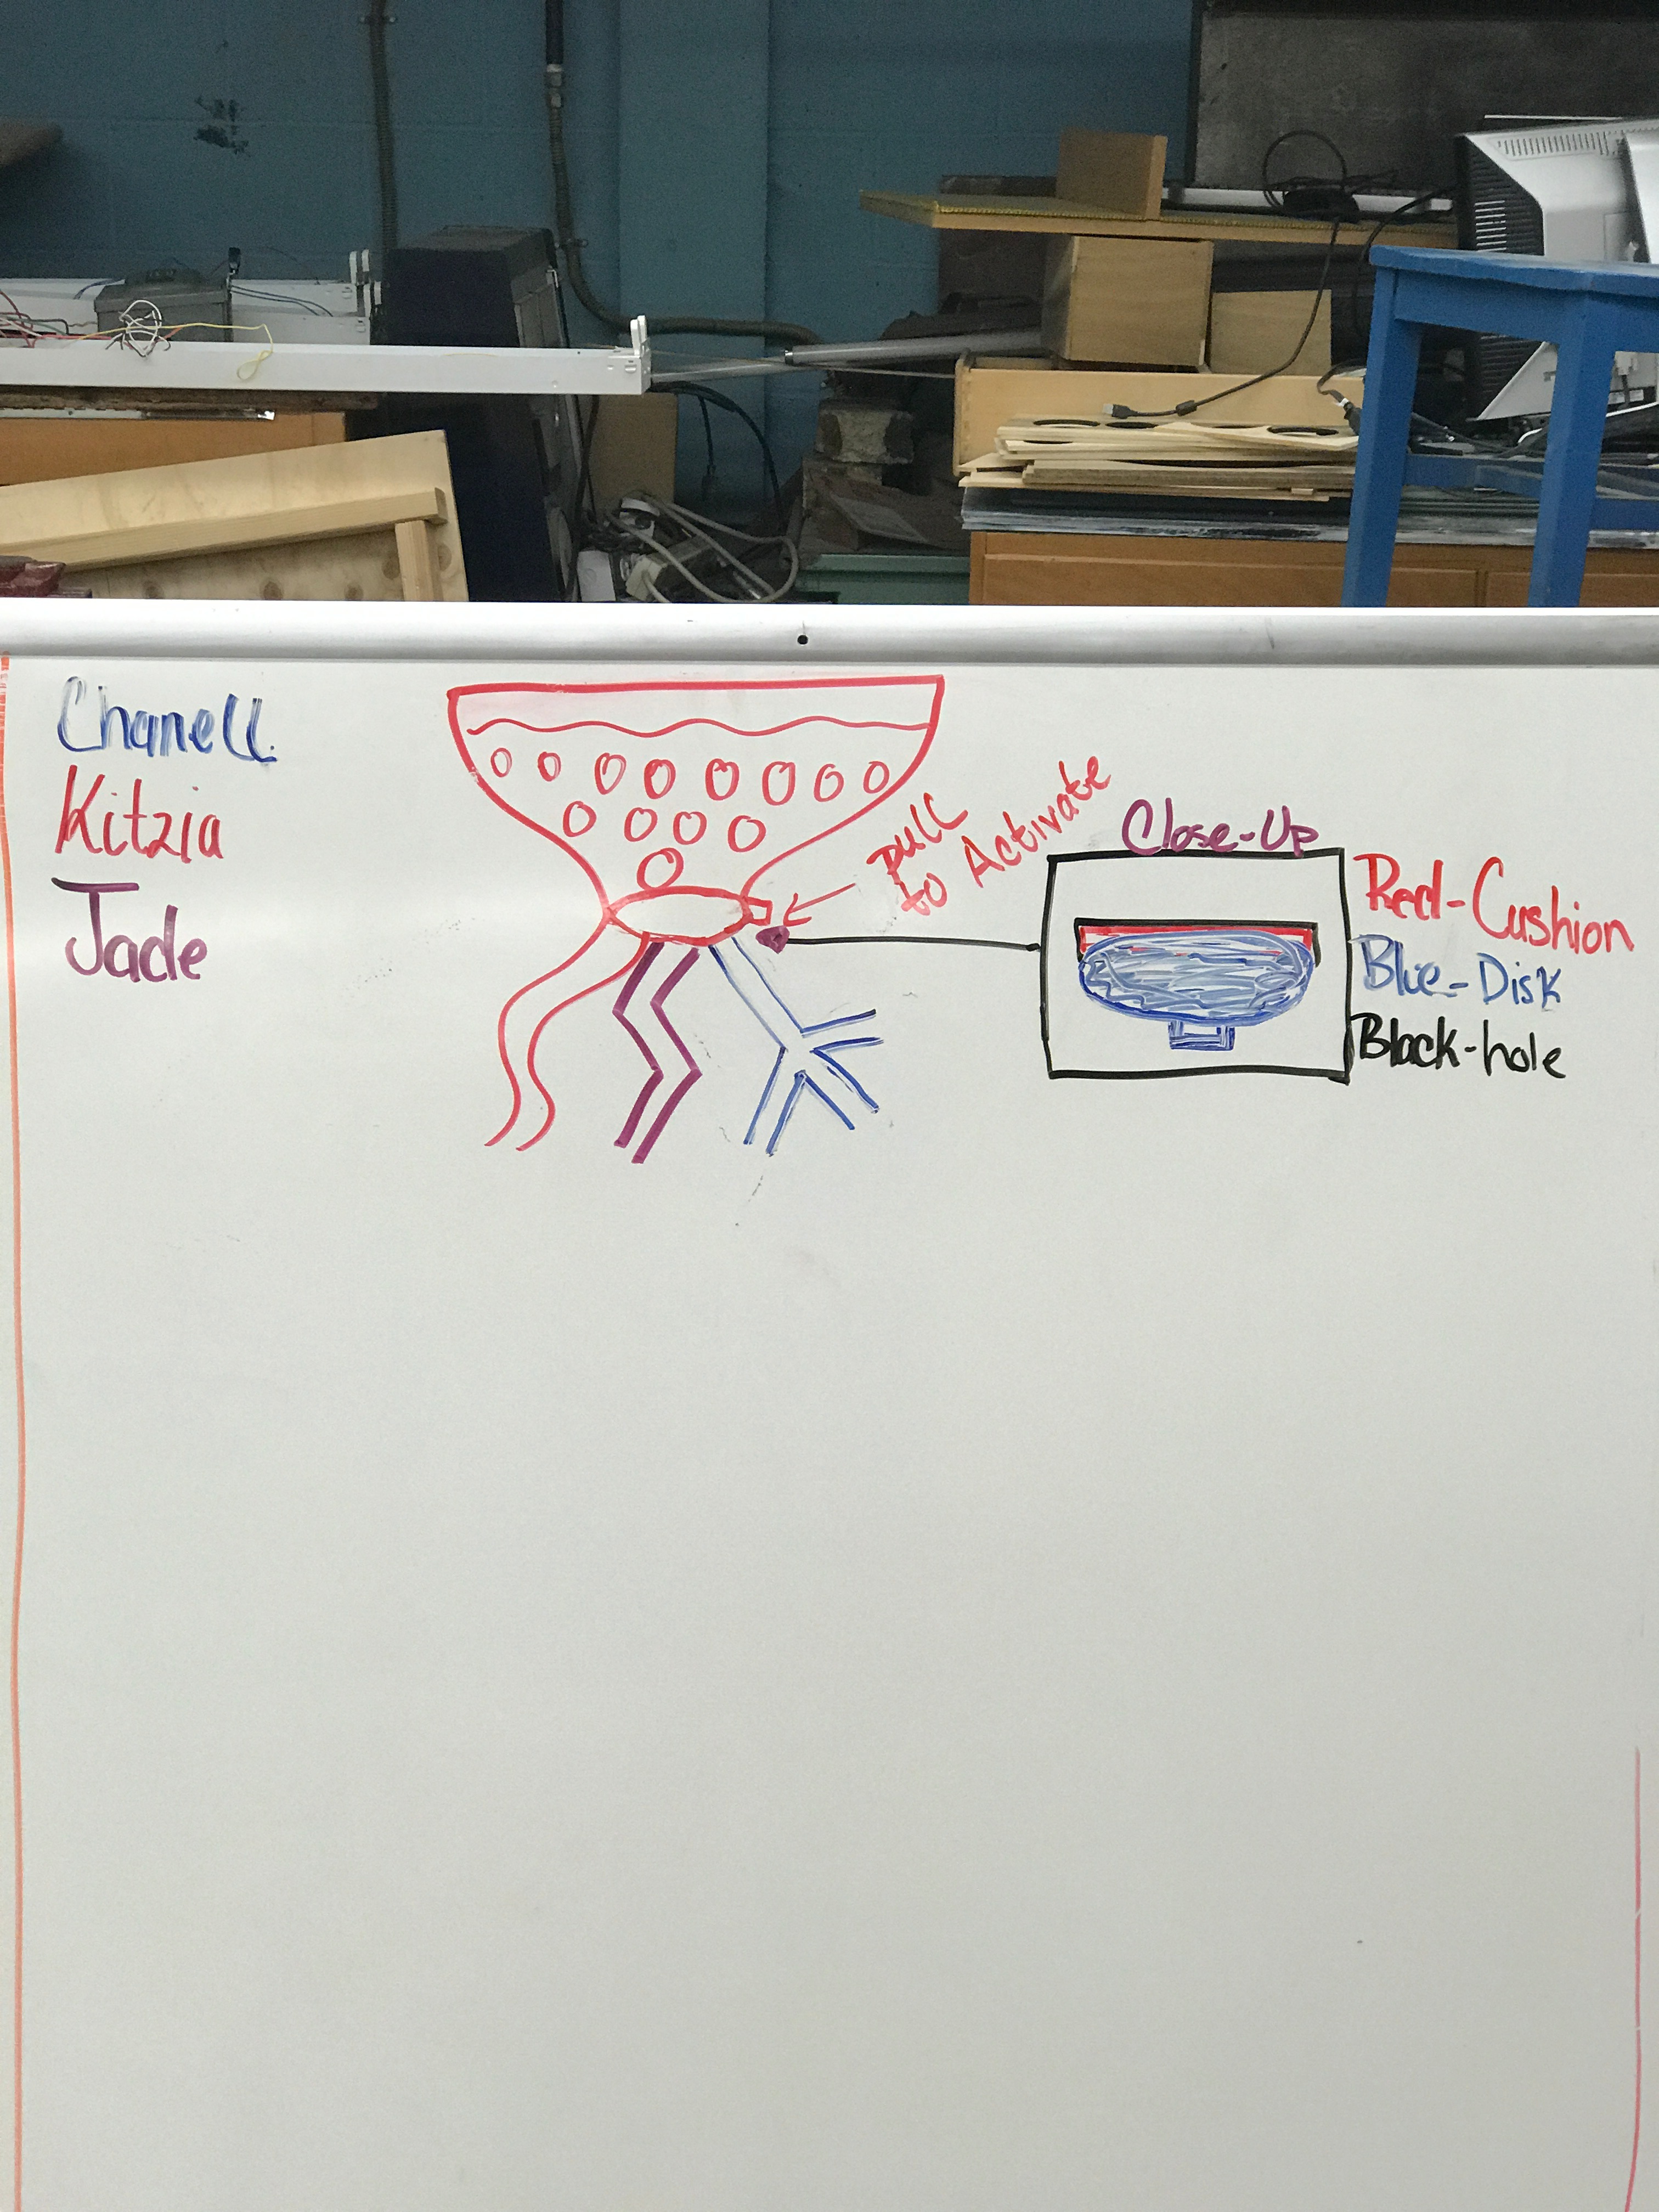 Chanell
Kitzia
Jade
pull
to Activate
Close-Up
Red-Cushion
Blue-Disk
Black-hole